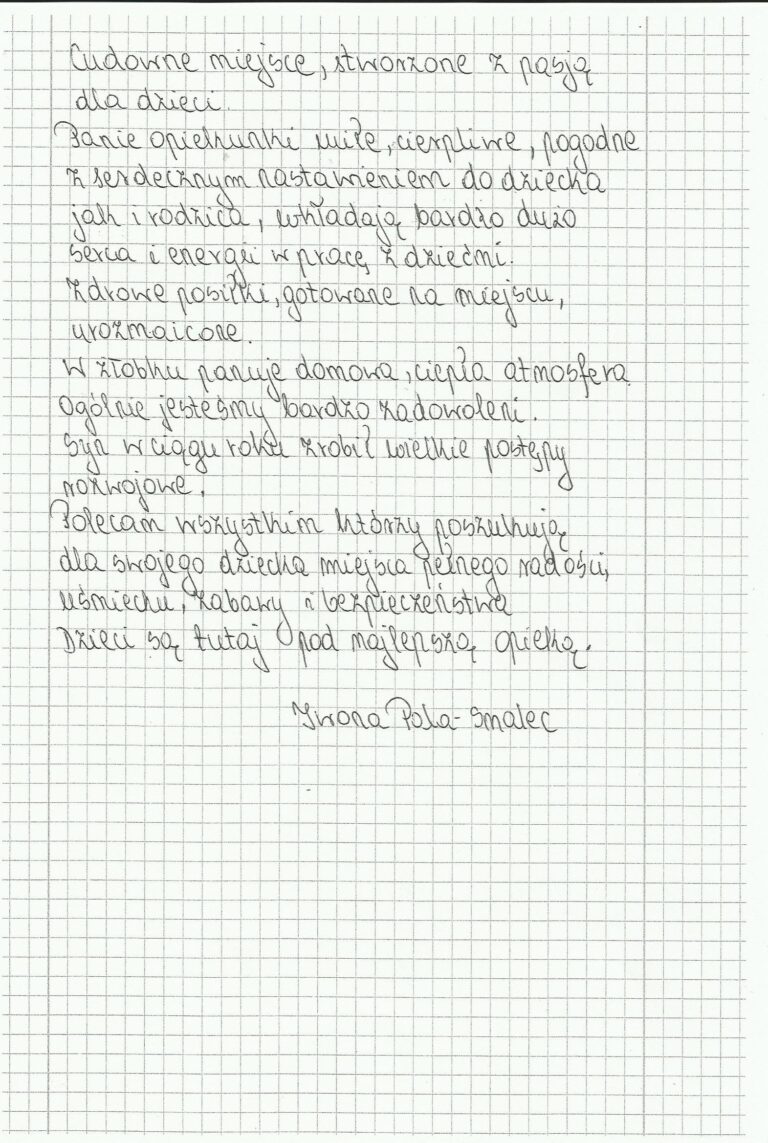 Cudowne miejsce, stworzone z pasją
dla dzieci.
Panie opiekunki miłe, cierpliwe, pogodne
z serdecznym nastawieniem do dziecka
jak i rodzica, wkładają bardzo dużo
serca i energii w pracę z dziećmi.
Zdrowe posiłki, gotowane na miejscu,
urozmaicone.
W żłobku panuje domowa, ciepła atmosfera.
Ogólnie jesteśmy bardzo zadowoleni.
Syn w ciągu roku zrobił wielkie postępy
rozwojowe.
Polecam wszystkim którzy poszukują
dla swojego dziecka miejsca pełnego radości,
uśmiechu, zabawy i bezpieczeństwa
Dzieci są tutaj pod najlepszą opieką.
Iwona Pola-Smalec